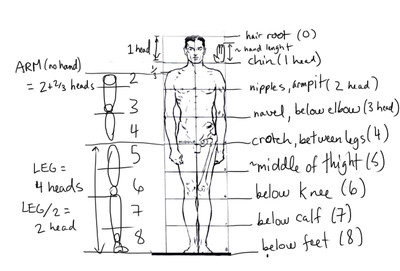 hair root (0)
1 head
~ hand lenght
chin (1 head)
ARM (no hand)
= 2 + 2/3 heads
nipples, armpit (2 head)
navel, below elbow (3 head)
crotch, between legs (4)
~middle of thight (5)
below knee (6)
below calf (7)
below feet (8)
2
3
4
5
6
7
8
LEG =
4 heads
LEG/2 =
2 head